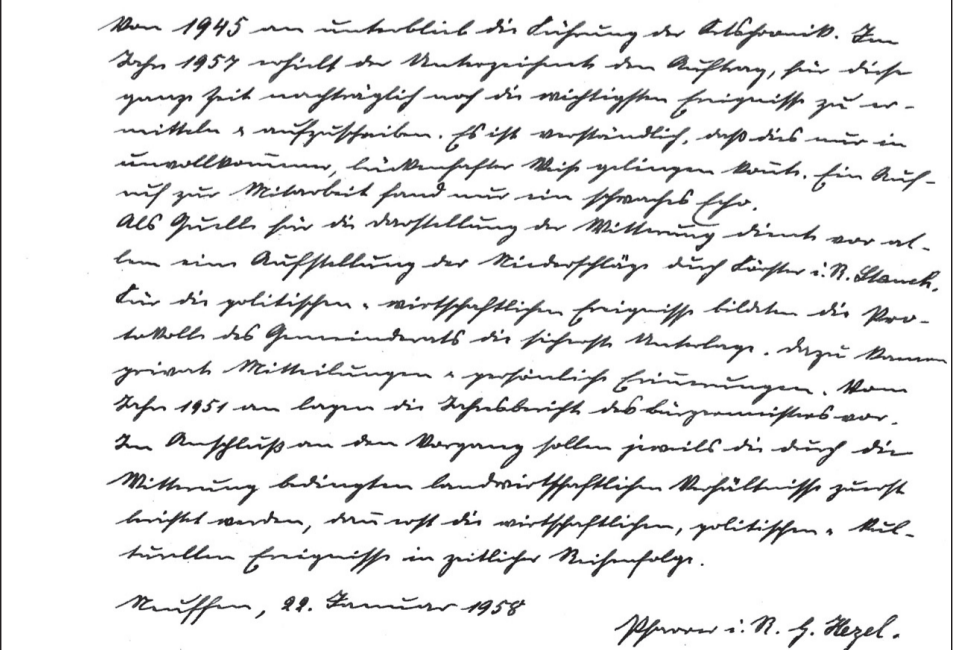 Von 1945 an unterblieb die Führung der Ortschronik. Im
Jahr 1957 erhielt der Unterzeichnete den Auftrag, für diese
ganze Zeit nachträglich noch die wichtigsten Ereignisse zu er-
mitteln & aufzuschreiben. Es ist verständlich, daß dies nur in
unvollkommener, lückenhafter Weise gelingen konnte. Ein Auf-
ruf zur Mitarbeit fand nur ein schwaches Echo.
Als Quelle für die Darstellung der Witterung diente vor al-
lem eine Aufstellung der Niederschläge durch Förster i. R.
Für die politischen & wirtschaftlichen Ereignisse bildeten die Pro-
tokolle des Gemeinderats die sicherste Unterlage. Dazu kamen
private Mitteilungen & persönliche Erinnerungen. Vom
Jahr 1951 an lagen die Jahresberichte des Bürgermeisters vor.
Im Anschluß an den Vorgang sollen jeweils die durch die
Witterung bedingten landwirtschaftlichen Verhältnisse zuerst
berichtet werden, dann erst die wirtschaftlichen, politischen & kul-
turellen Ereignisse in zeitlicher Reihenfolge.
Neuffen, 22. Januar 1958
Pfarrer i. R. G. Hezel.